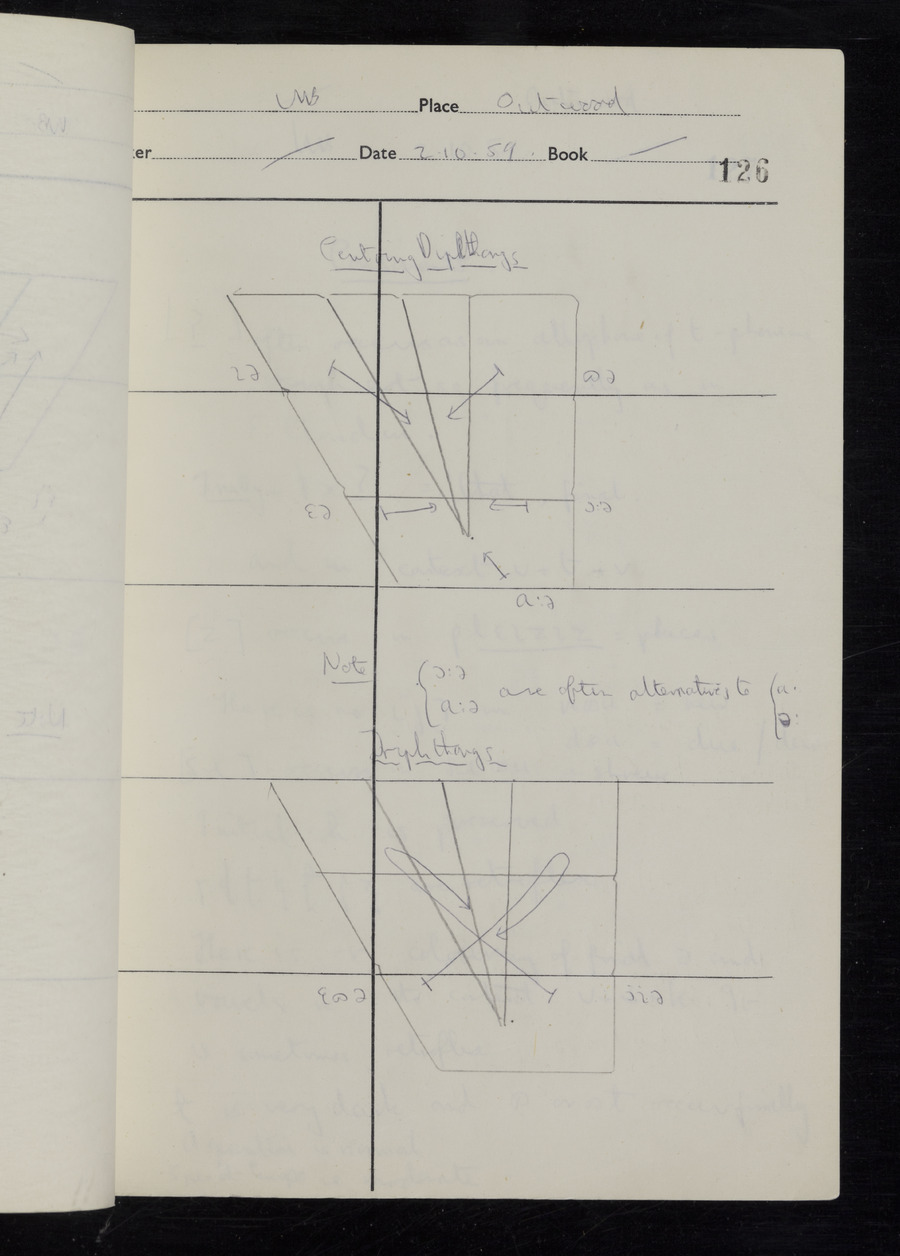 Place Outwood
Date 2.10.59. Book
126
Centring Diphthongs
ɪə
ɷə
ɛə
ɔ:ə
a:ə
Note
ɔ:ə
a:ə are often alternatives to
Triphthongs
ɛɷə